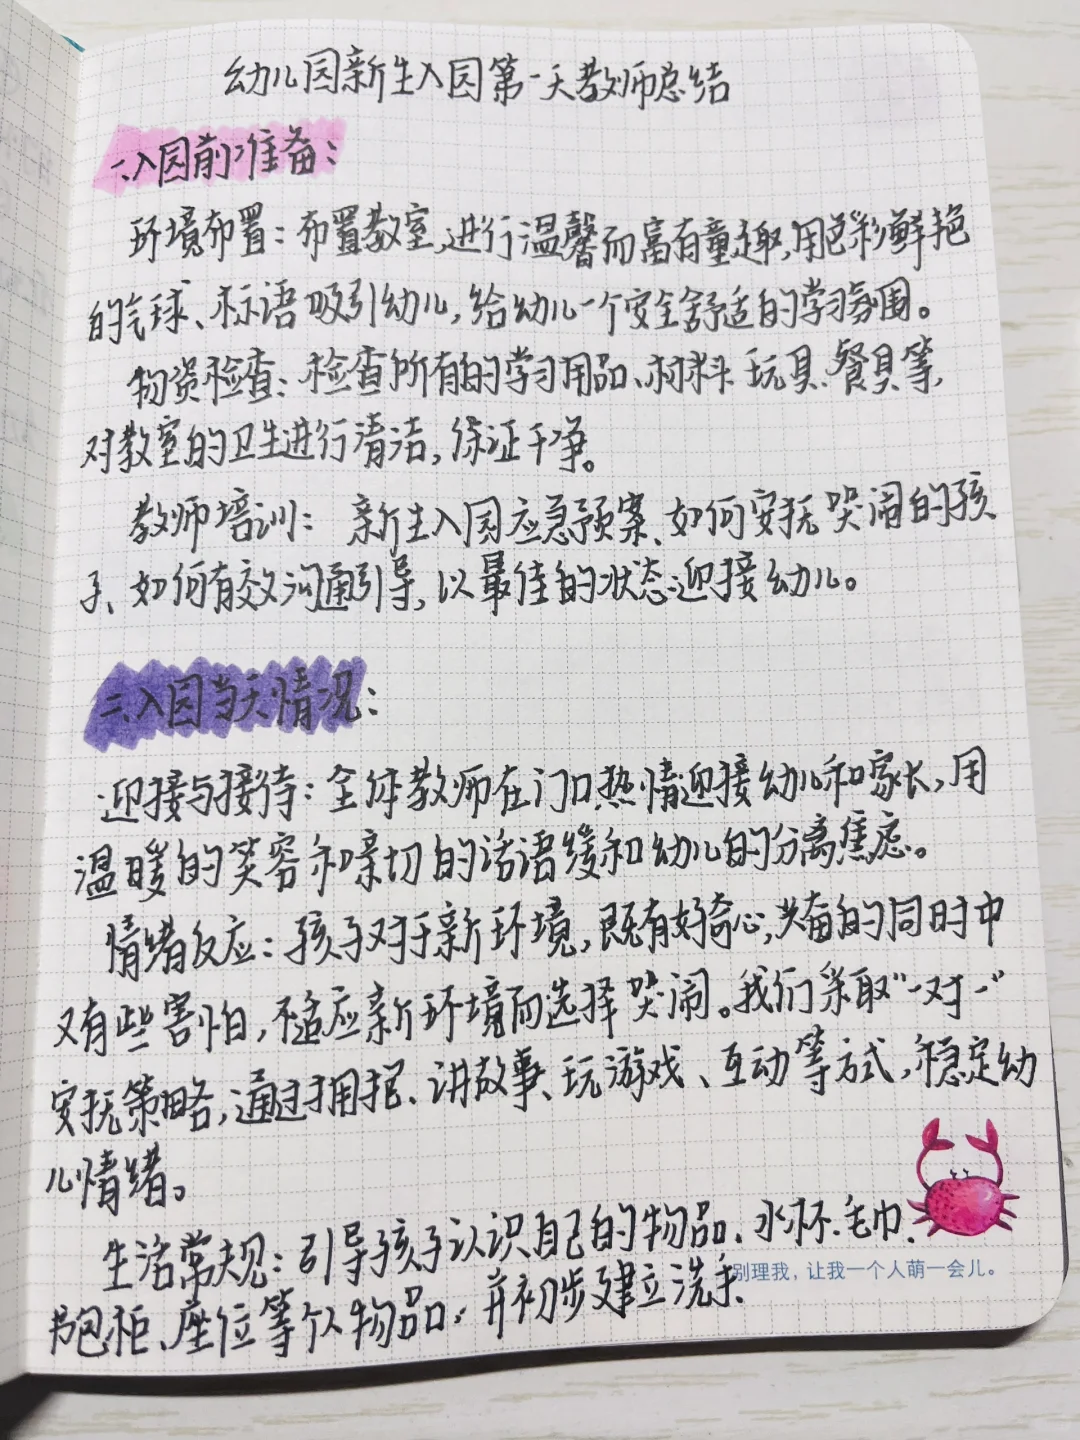 幼儿园新生入园第一天教师总结
一、入园前准备：
环境布置：布置教室，进行温馨而富有童趣，用色彩鲜艳
的气球、标语吸引幼儿，给幼儿一个安全舒适的学习氛围。
物资检查：检查所有的学习用品、材料、玩具、餐具等，
对教室的卫生进行清洁，保证干净。
教师培训：新生入园应急预案、如何安抚哭闹的孩
子、如何有效沟通引导，以最佳的状态迎接幼儿。
二、入园当天情况：
迎接与接待：全体教师在门口热情迎接幼儿和家长，用
温暖的笑容和亲切的话语缓和幼儿的分离焦虑。
情绪反应：孩子对于新环境，既有好奇心，兴奋的同时中
又有些害怕，不适应新环境而选择哭闹。我们采取“一对一”
安抚策略，通过拥抱、讲故事、玩游戏、互动等方式，稳定幼
儿情绪。
生活常规：引导孩子认识自己的物品、水杯、毛巾、
书包柜、座位等个人物品，并初步建立洗手、
别理我，让我一个人萌一会儿。